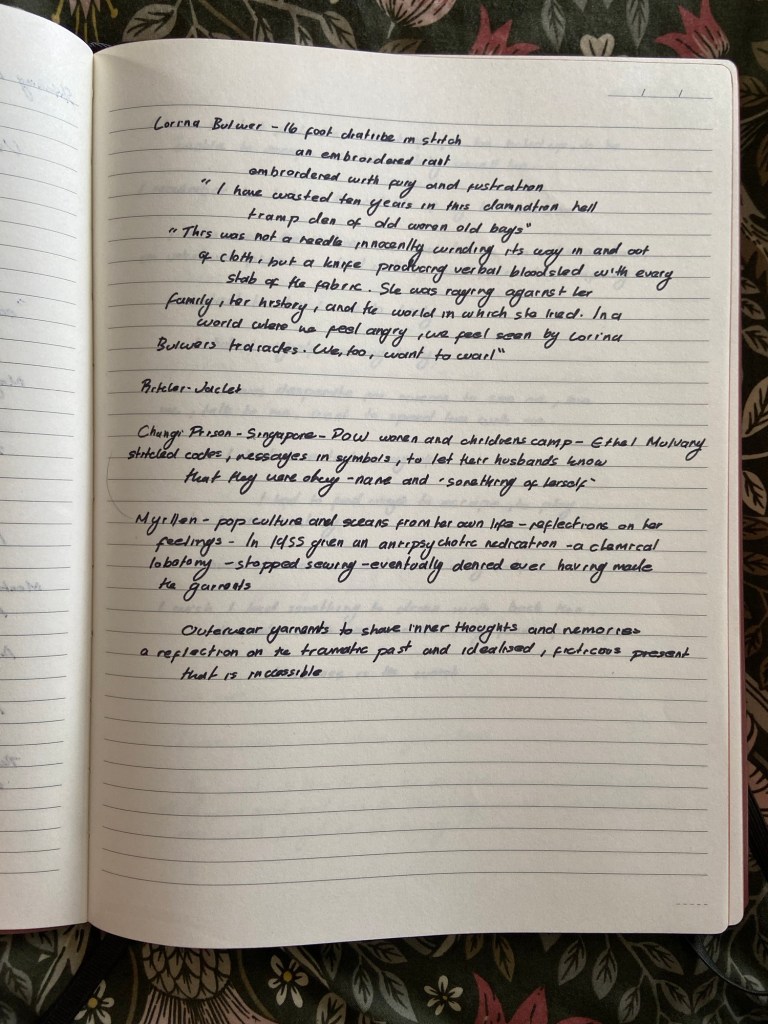 Lorina Bulwer - 16 foot diatribe in stitch
an embroidered rant
embroidered with fury and fustration
"I have wasted ten years in this damnation hell
tramp den of old women old bags"
"This was not a needle innocently winding its way in and out
of cloth, but a knife producing verbal bloodshed with every
stab of the fabric. She was raging against her
family, her history, and the world in which she lived. In a
world where we feel angry, we feel seen by Lorina
Bulwers tirades. We, too, want to wail"
Jacket
Changi Prison - Singapore - POW women and childrens camp - Ethel Mulvany
stitched codes, messages in symbols, to let their husbands know
that they were okay - name and "something of herself"
Myrllen - pop culture and scenes from her own life - reflections on her
feelings - In 1955 given an antipsychotic medication - a chemical
lobotomy - stopped sewing - eventually denied ever having made
the garments
Outerwear garments to share inner thoughts and memories
a reflection on the tramatic past and idealised, ficticous present
that is